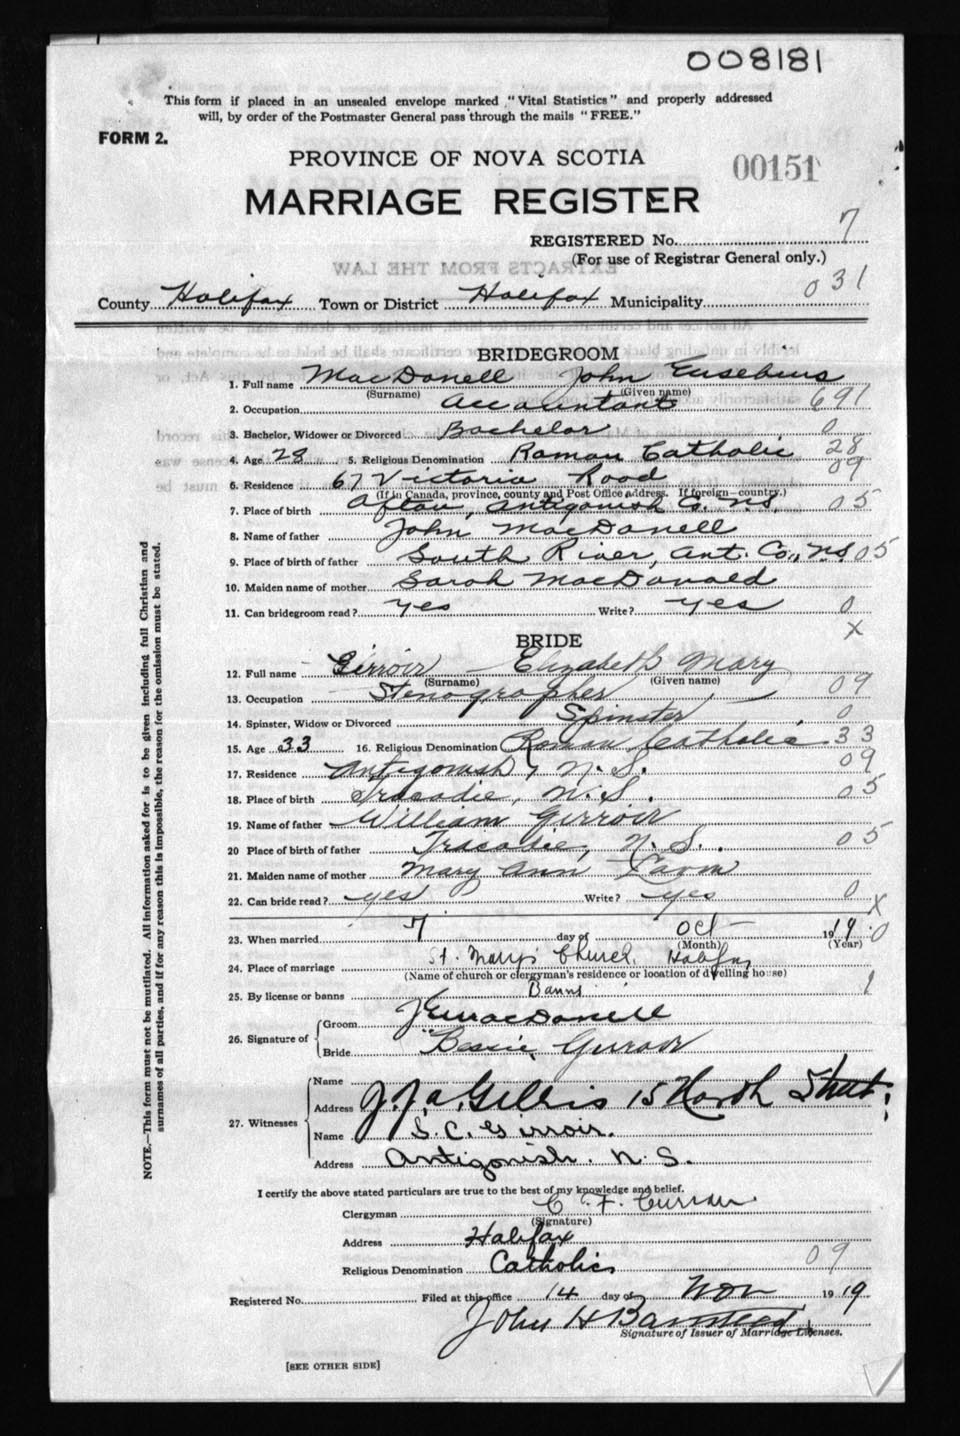 008181
This form if placed in an unsealed envelope marked "Vital Statistics" and properly addressed
will, by order of the Postmaster General pass through the mails "FREE."
FORM 2.
PROVINCE OF NOVA SCOTIA
00151
MARRIAGE REGISTER
REGISTERED No. 7
(For use of Registrar General only.)
County Halifax Town or District Halifax Municipality 031
BRIDEGROOM
1. Full name MacDonell John Eusebius
(Surname) (Given name)
2. Occupation Accountant 691
3. Bachelor, Widower or Divorced Bachelor 0
4. Age 28 5. Religious Denomination Roman Catholic 28
6. Residence 67 Victoria Road 09
(If in Canada, province, county and Post Office address. If foreign—country.)
7. Place of birth Afton, Antigonish Co. N.S. 05
8. Name of father John MacDonell
9. Place of birth of father South River, Ant. Co., N.S. 05
10. Maiden name of mother Sarah MacDonald
11. Can bridegroom read? Yes Write? yes 0
X
BRIDE
12. Full name Girroir Elizabeth Mary
(Surname) (Given name)
13. Occupation Stenographer 09
14. Spinster, Widow or Divorced Spinster 0
15. Age 33 16. Religious Denomination Roman Catholic 33
17. Residence Antigonish, N.S. 09
18. Place of birth Tracadie, N.S. 05
19. Name of father William Girroir
20 Place of birth of father Tracadie, N.S. 05
21. Maiden name of mother Mary Ann
22. Can bride read? yes Write? yes 0
X
23. When married 7 day of Oct 1919 0
(Month) (Year)
24. Place of marriage St. Mary's Church, Halifax
(Name of church or clergyman's residence or location of dwelling house)
25. By license or banns Banns 1
26. Signature of Groom J E MacDonell
Bride Bessie Girroir
27. Witnesses Name
Address J. J. A. Gillis 15 North Street
Name S. C. Girroir.
Address Antigonish. N. S.
I certify the above stated particulars are true to the best of my knowledge and belief.
Clergyman C. F. Curran
(Signature)
Address Halifax
Religious Denomination Catholic 09
Registered No. Filed at this office 14 day of Nov 1919
John H Barnstead
Signature of Issuer of Marriage Licenses.
[SEE OTHER SIDE]
NOTE.—This form must not be mutilated. All information asked for is to be given including full Christian and
surnames of all parties, and if for any reason this is impossible, the reason for the omission must be stated.